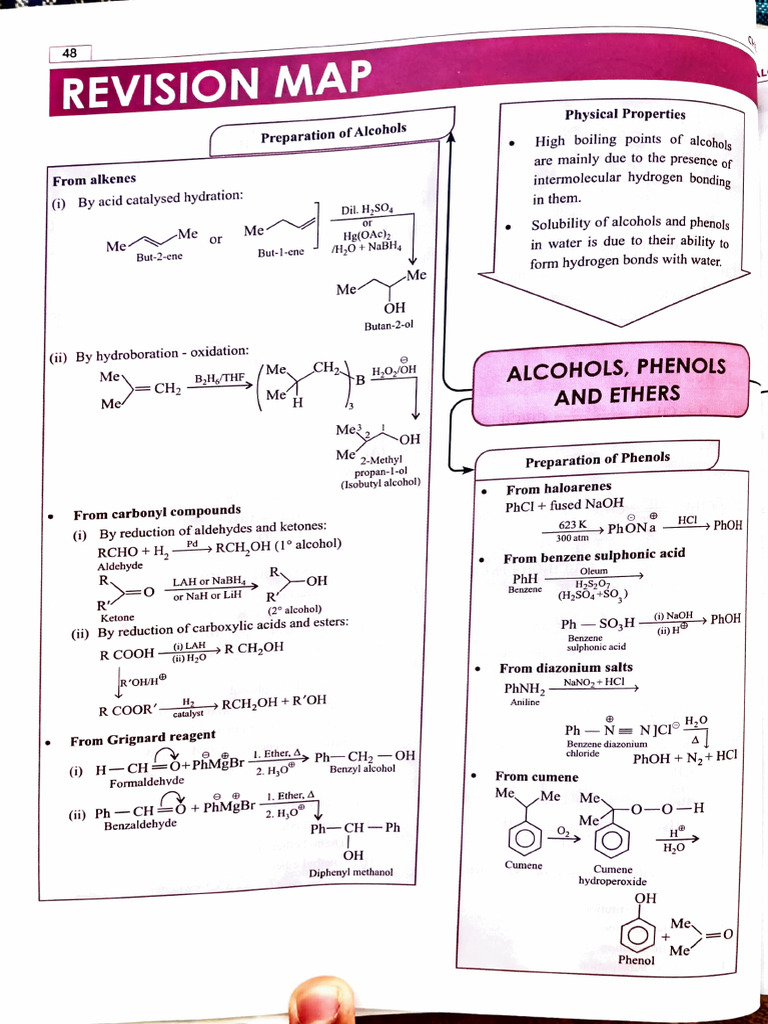 48
REVISION MAP
Preparation of Alcohols
From alkenes
(i) By acid catalysed hydration:
Me Me or Me
But-2-ene But-1-ene
Dil. H₂SO₄
or
Hg(OAc)₂
/H₂O + NaBH₄
Me Me
OH
Butan-2-ol
(ii) By hydroboration - oxidation:
Me
Me
CH₂
B₂H₆/THF
Me CH₂
Me H
3
B
H₂O₂/OH⊖
Me³ 2 1
OH
Me
2-Methyl
propan-1-ol
(Isobutyl alcohol)
• From carbonyl compounds
(i) By reduction of aldehydes and ketones:
RCHO + H₂ Pd → RCH₂OH (1° alcohol)
Aldehyde
R
R'
=O
Ketone
LAH or NaBH₄
or NaH or LiH
R
R'
OH
(2° alcohol)
(ii) By reduction of carboxylic acids and esters:
R COOH (i) LAH (ii) H₂O → R CH₂OH
↓ R'OH/H⊕
R COOR' H₂ catalyst → RCH₂OH + R'OH
• From Grignard reagent
(i) H — CH = O + Ph⊖M⊕gBr 1. Ether, Δ 2. H₃O⊕ → Ph — CH₂ — OH
Formaldehyde Benzyl alcohol
(ii) Ph — CH = O + Ph⊖M⊕gBr 1. Ether, Δ 2. H₃O⊕
Benzaldehyde
Ph — CH — Ph
|
OH
Diphenyl methanol
Physical Properties
• High boiling points of alcohols
are mainly due to the presence of
intermolecular hydrogen bonding
in them.
• Solubility of alcohols and phenols
in water is due to their ability to
form hydrogen bonds with water.
ALCOHOLS, PHENOLS
AND ETHERS
Preparation of Phenols
• From haloarenes
PhCl + fused NaOH
623 K 300 atm → PhO⊖Na⊕ HCl → PhOH
• From benzene sulphonic acid
PhH Oleum →
Benzene H₂S₂O₇
(H₂SO₄+SO₃)
Ph — SO₃H (i) NaOH (ii) H⊕ → PhOH
Benzene
sulphonic acid
• From diazonium salts
PhNH₂ NaNO₂ + HCl →
Aniline
Ph — N⊕ ≡ N]Cl⊖ H₂O
Benzene diazonium Δ
chloride
PhOH + N₂ + HCl
• From cumene
Me Me Me
O — O — H
Me
O₂ → H⊕ H₂O →
Cumene Cumene
hydroperoxide
OH
+ Me
Me
=O
Phenol